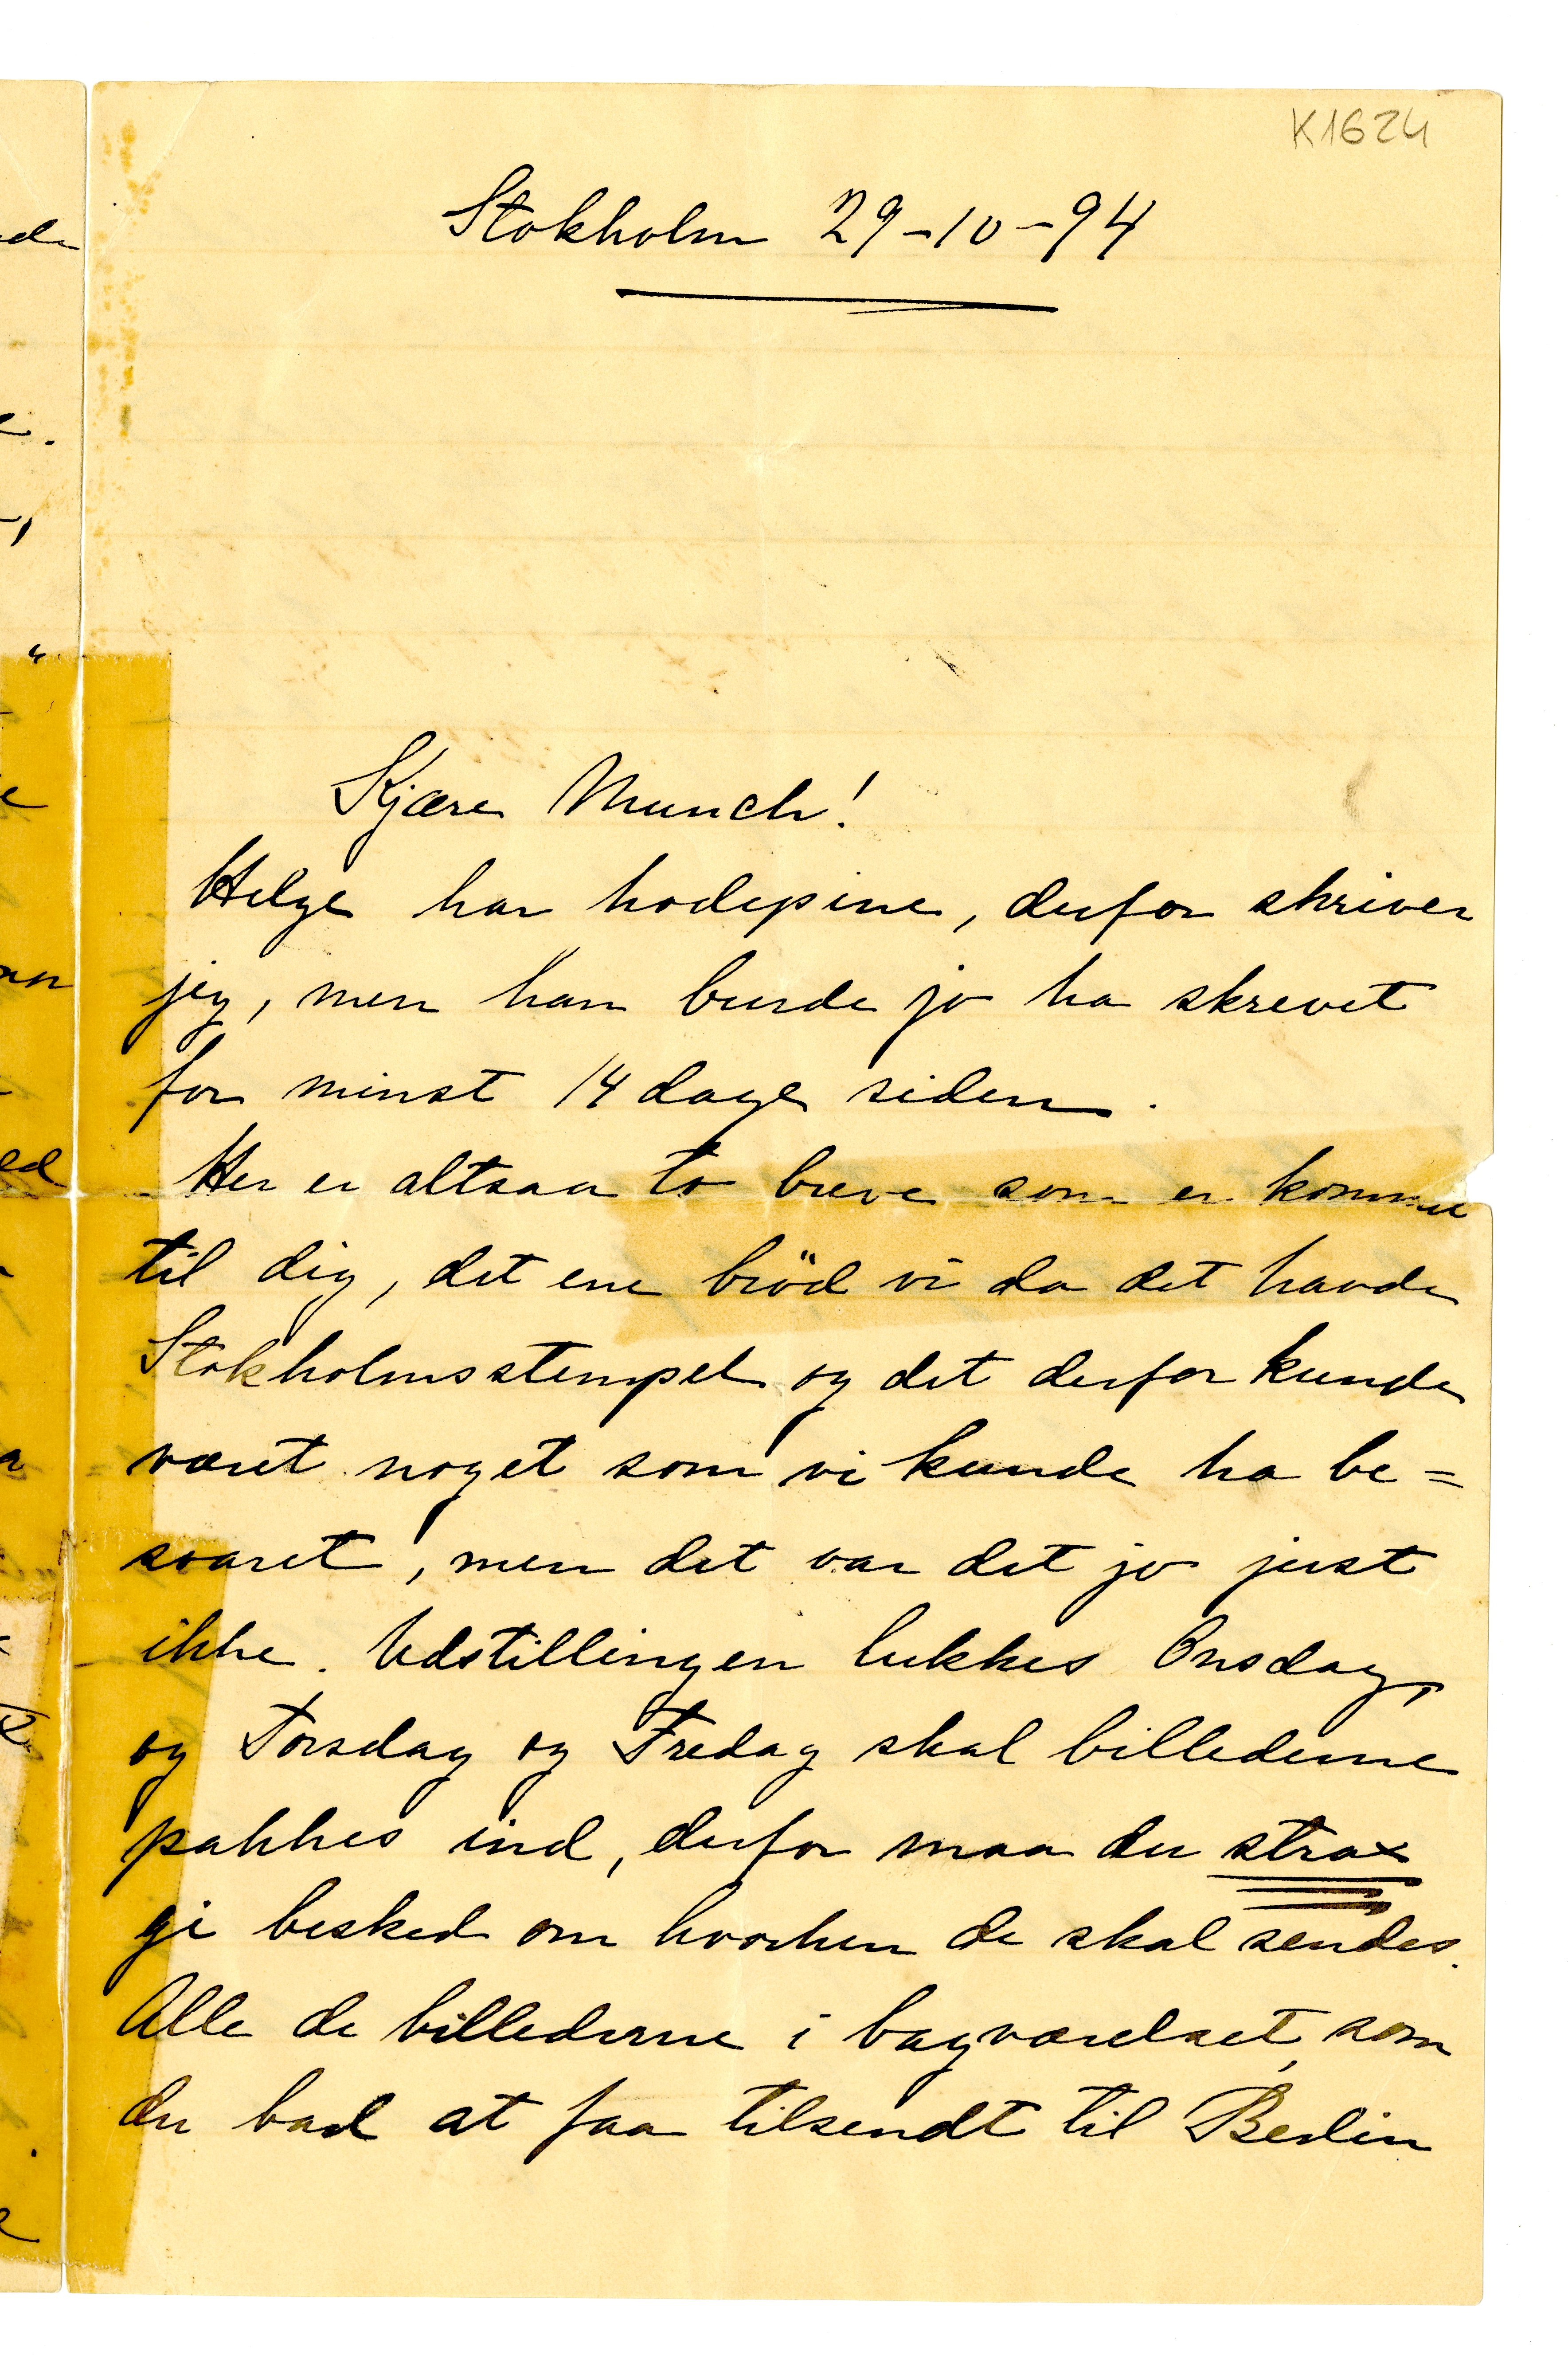 K1624
Stokholm 29-10-94
Kjære Munch!
Helge har hodepine, derfor skriver
jeg, men han burde jo ha skrevet
for minst 14 dage siden.
Her er altsaa to breve som er kommet
til dig, det ene bröd vi da det havde
Stokholmsstempel og det derfor kunde
været noget som vi kunde ha be=
svaret, men det var det jo just
ikke. Udstillingen lukkes Onsdag,
og Torsdag og Fredag skal billederne
pakkes ind, derfor maa du strax
gi besked om hvorhen de skal sendes.
Alle de billederne i bagværelset, som
du bad at faa tilsendt til Berlin